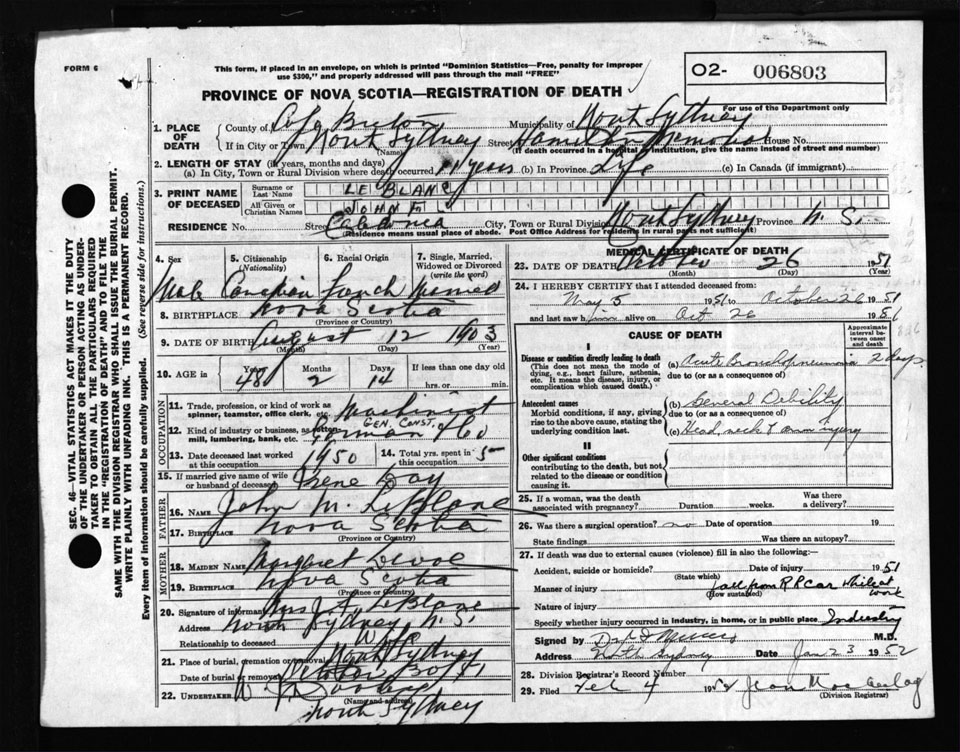 FORM 6
This form, if placed in an envelope, on which is printed "Dominion Statistics—Free, penalty for improper
use $300," and properly addressed will pass through the mail "FREE"
O2- 006803
For use of the Department only
PROVINCE OF NOVA SCOTIA—REGISTRATION OF DEATH
1. PLACE OF DEATH
County of Cape Breton Municipality of North Sydney
If in City or Town North Sydney (Name) Street Hamilton Memorial House No.
(If death occurred in a hospital or institution, give the name instead of street and number)
2. LENGTH OF STAY (in years, months and days)
(a) In City, Town or Rural Division where death occurred years (b) In Province Life (c) In Canada (if immigrant)
3. PRINT NAME OF DECEASED
Surname or Last Name LE BLANC
All Given or Christian Names JOHN F
RESIDENCE No. Street Caledonia City, Town or Rural Division North Sydney Province N. S.
(Residence means usual place of abode. Post Office Address for residents in rural parts not sufficient)
4. Sex Male
5. Citizenship (Nationality) Canadian
6. Racial Origin French
7. Single, Married, Widowed or Divorced (write the word) Married
8. BIRTHPLACE Nova Scotia
(Province or Country)
9. DATE OF BIRTH August 12 1903
(Month) (Day) (Year)
10. AGE in Years 48 Months 2 Days 14 If less than one day old
hrs. or min.
OCCUPATION
11. Trade, profession, or kind of work as spinner, teamster, office clerk, etc. Machinist
12. Kind of industry or business, as cotton mill, lumbering, bank, etc. GEN. CONST. Co
13. Date deceased last worked at this occupation 1950
14. Total yrs. spent in this occupation 5
15. If married give name of wife or husband of deceased Irene Day
FATHER
16. NAME John M. LeBlanc
17. BIRTHPLACE Nova Scotia
(Province or Country)
MOTHER
18. MAIDEN NAME Margaret
19. BIRTHPLACE Nova Scotia
(Province or Country)
20. Signature of informant Mrs J. F. LeBlanc
Address North Sydney N. S.
Relationship to deceased Wife
21. Place of burial, cremation or removal North Sydney
Date of burial or removal October
22. UNDERTAKER
(Name and address)
North Sydney
MEDICAL CERTIFICATE OF DEATH
23. DATE OF DEATH October 26 1951
(Month) (Day) (Year)
24. I HEREBY CERTIFY that I attended deceased from:
May 5 1951 to October 26 1951
and last saw him alive on Oct. 26 1951
CAUSE OF DEATH
Approximate interval between onset and death
I
Disease or condition directly leading to death
(This does not mean the mode of dying, e.g., heart failure, asthenia, etc. It means the disease, injury, or complication which caused death.)
(a) Acute bronchopneumonia 2 days
due to (or as a consequence of)
Antecedent causes
Morbid conditions, if any, giving rise to the above cause, stating the underlying condition last.
(b) General Debility
due to (or as a consequence of)
(c) Head, neck & arm Injury
II
Other significant conditions
contributing to the death, but not related to the disease or condition causing it.
25. If a woman, was the death associated with pregnancy? Duration weeks. Was there a delivery?
26. Was there a surgical operation? no Date of operation 19
State findings Was there an autopsy?
27. If death was due to external causes (violence) fill in also the following:—
Accident, suicide or homicide? Date of injury 1951
(State which)
Manner of injury Fall from R R Car while at work
(How sustained)
Nature of injury
Specify whether injury occurred in industry, in home, or in public place Industry
Signed by M.D.
Address North Sydney Date Jan 23 1952
28. Division Registrar's Record Number
29. Filed Feb 4 1952 Jean
(Division Registrar)
SEC. 46—VITAL STATISTICS ACT MAKES IT THE DUTY
OF THE UNDERTAKER OR PERSON ACTING AS UNDER-
TAKER TO OBTAIN ALL THE PARTICULARS REQUIRED
IN THE "REGISTRATION OF DEATH" AND TO FILE THE
SAME WITH THE DIVISION REGISTRAR WHO SHALL ISSUE THE BURIAL PERMIT.
WRITE PLAINLY WITH UNFADING INK. THIS IS A PERMANENT RECORD.
Every item of information should be carefully supplied. (See reverse side for instructions.)